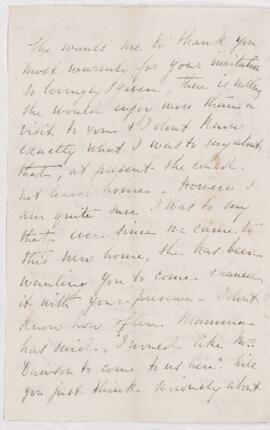 She wants me to thank you
most warmly for your invitation
so lovingly given, there is nothing
she would enjoy more than a
visit to you & I dont know
exactly what I was to say about
that, at present she could
not leave home. However I
am quite sure I was to say
that ever since we came to
this new home, she has been
wanting you to come &
it with your presence. I dont
know how often Mamma
has said, "I would like Mrs
Dawson to come to us here". Will
you just think seriously about